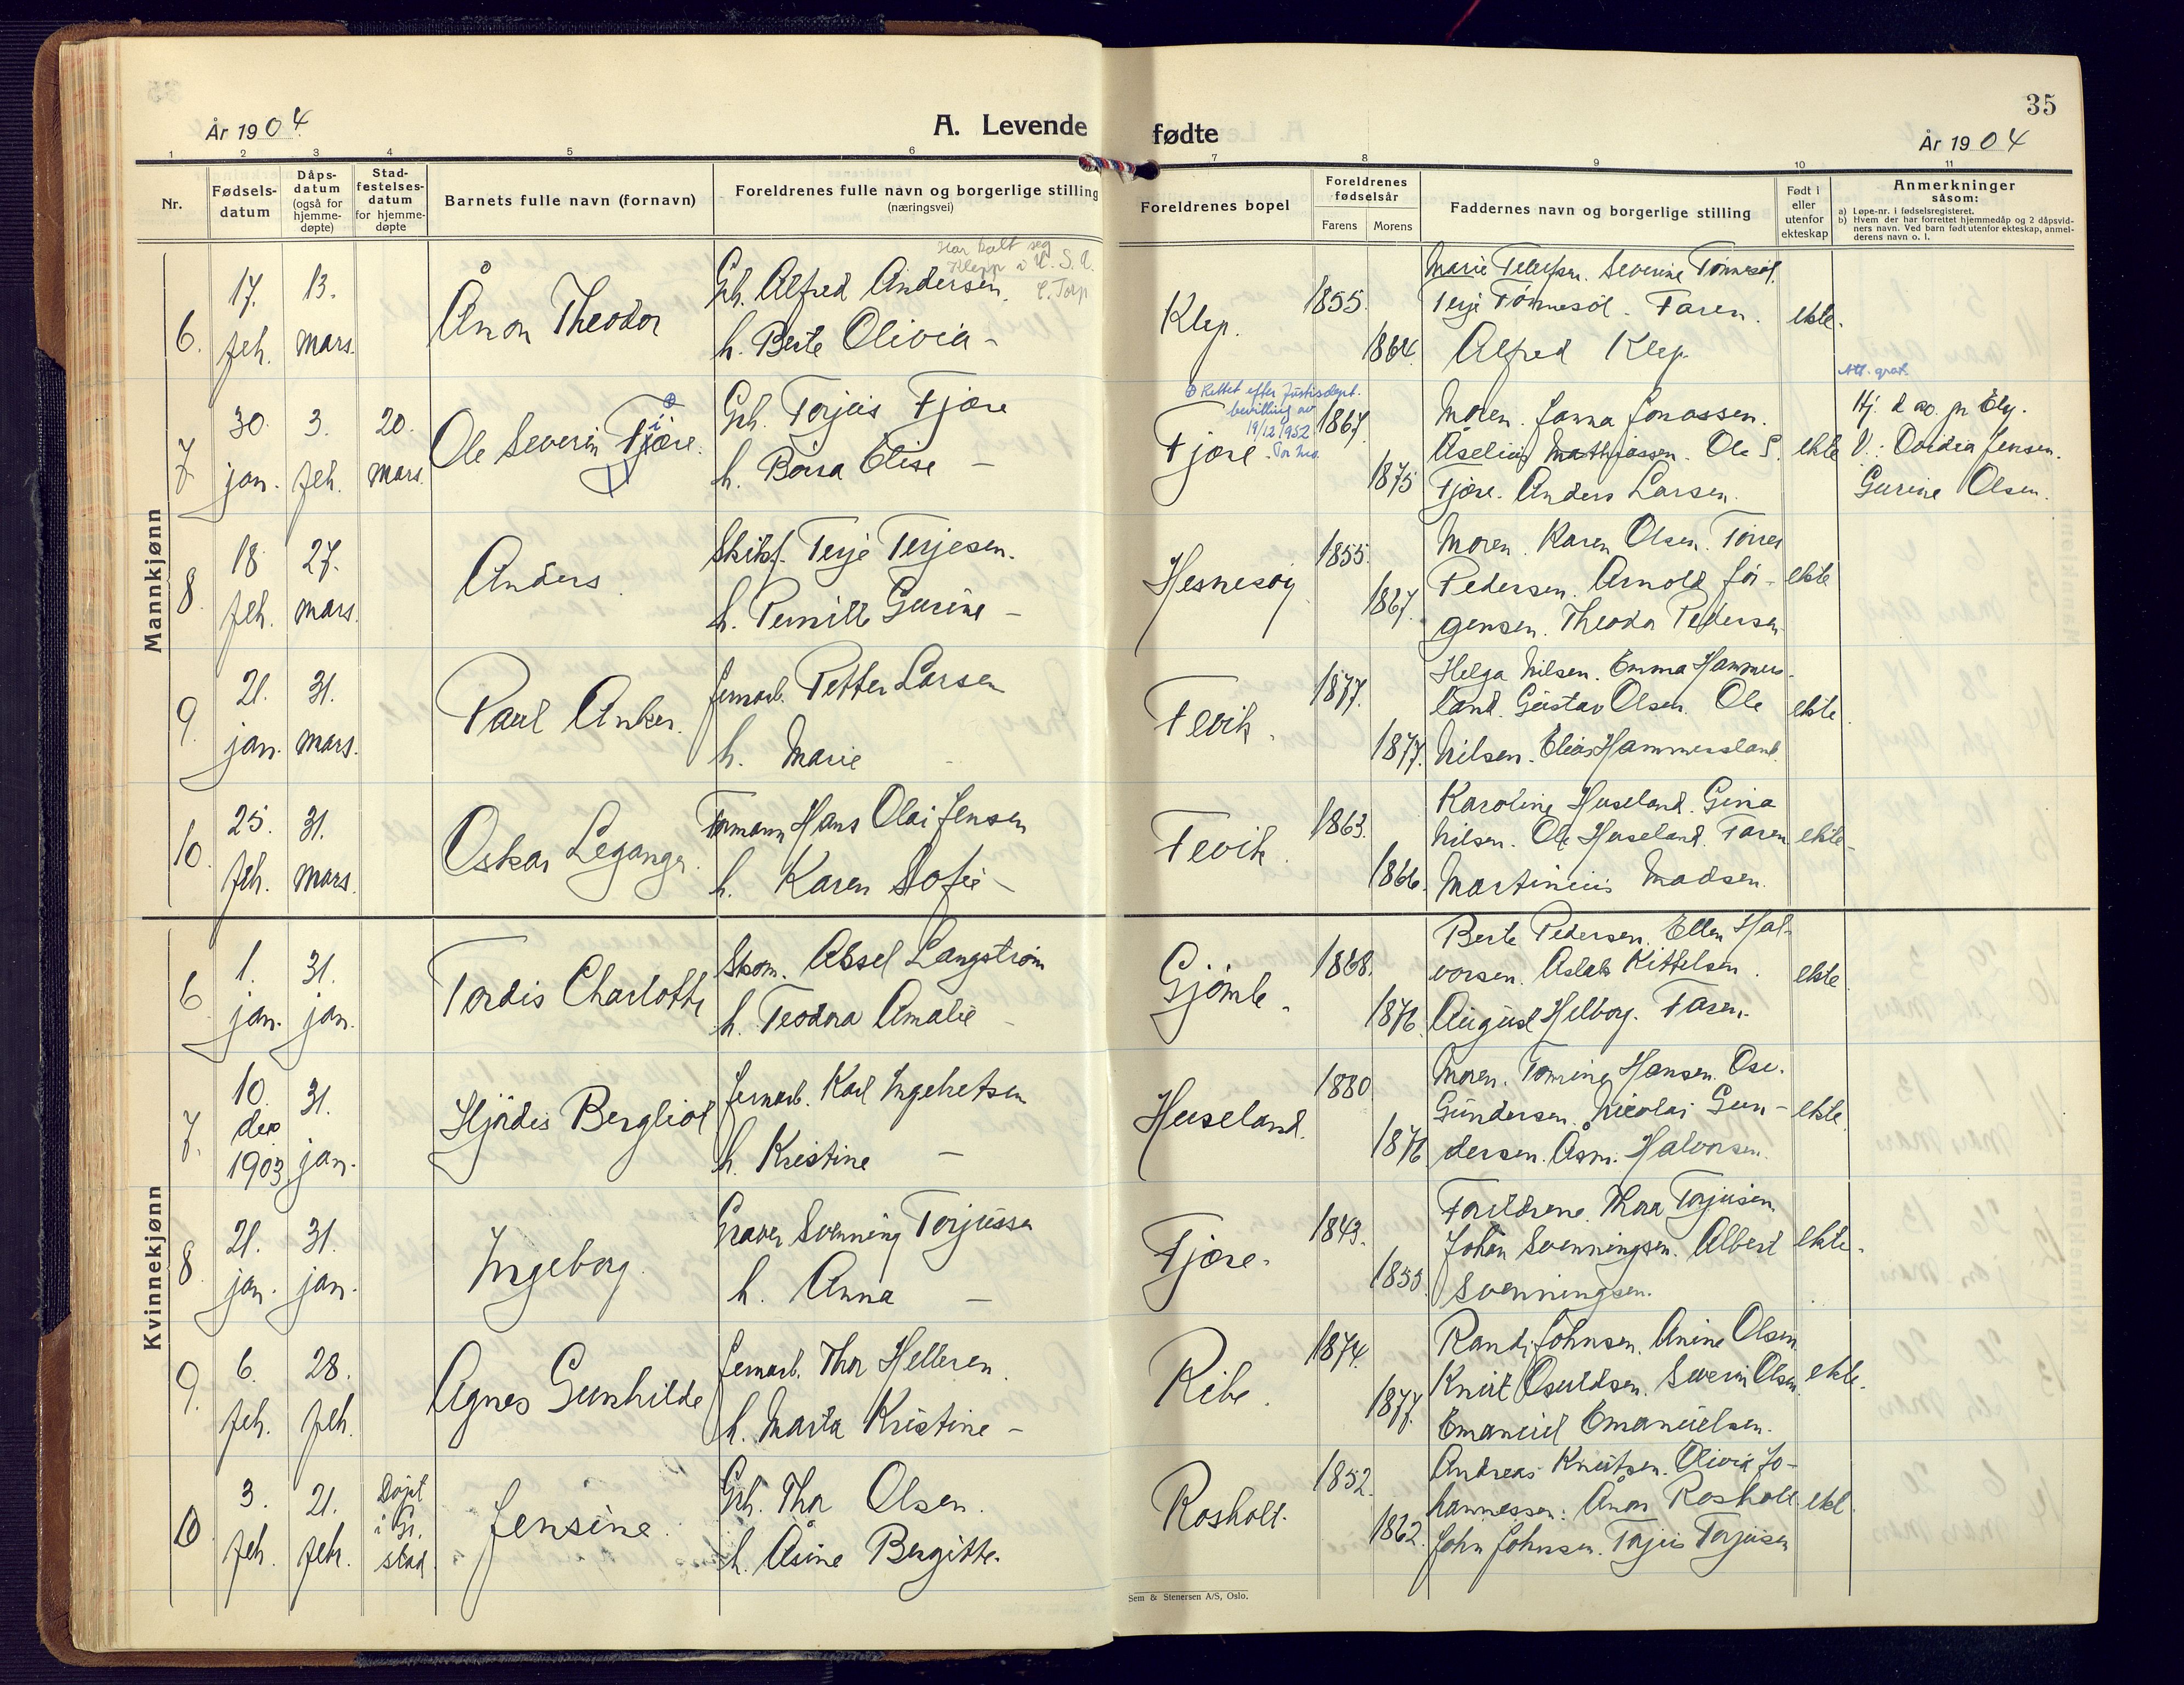 35
År 1904
A. Levende fødte
År 1904
1 2 3 4 5 6 7 8 9 10 11
Nr.
Fødsels-
datum
Dåps-
datum
(også for
hjemme-
døpte)
Stad-
festelses-
datum
for hjemme-
døpte
Barnets fulle navn (fornavn)
Foreldrenes fulle navn og borgerlige stilling
(næringsvei)
Foreldrenes bopel
Foreldrenes
fødselsår
Farens Morens
Faddernes navn og borgerlige stilling
Født i
eller
utenfor
ekteskap
Anmerkninger
såsom:
a) Løpe-nr. i fødselsregisteret.
b) Hvem der har forrettet hjemmedåp og 2 dåpsvid-
ners navn. Ved barn født utenfor ekteskap, anmel-
derens navn o. l.
Mannkjønn
6.
17. feb.
13. mars.
Ånon Theodor
Har kalt seg
Klepp i U.S.A.
Gb. Alfred Andersen.
h. Berte Olivia -
Klep.
1855.
1864.
Marie Severine Tønnesøl.
Terje Tønnesøl. Faren.
Alfred Klep.
ekte.
7
30. jan.
3. feb.
20. mars.
Ole Severin Fjære.
Gb. Torjus Fjære
h. Borra Elise -
⊕ Rettet efter Justisdept.
bevilling av
19/12 1952
Fjære
1867.
1875
Moren. Janna Jonassen.
Åselius Mathiassen. Ole S.
Fjære. Anders Larsen.
ekte
Att. grat.
Hj. d av jm Ely.
V: Jensen.
Gurine Olsen.
8.
18 feb.
27. mars.
Anders.
Skibsf. Terje Terjesen.
h. Pernille Gurine -
Hesnesøy
1855.
1867.
Moren. Karen Olsen. Torres
Pedersen. Arnold Jør-
gensen. Theodor Pedersen
ekte
9.
21. jan.
31. mars.
Paul Anker.
Jernarb. Petter Larsen
h. Marie -
Fevik.
1877.
1877.
Helga Nilsen. Emma Hammers-
land. Gustav Olsen. Ole
Nilsen. Elias Hammersland.
ekte.
10.
25. feb.
31. mars.
Oskar Leganger.
Formann Hans Olai Jensen
h. Karen Sofie -
Fevik.
1863.
1866.
Karoline Huseland. Gina
Nilsen. Ole Huseland. Faren
Martinius Madsen.
ekte.
Kvinnekjønn
6
1. jan.
31. jan.
Tordis Charlotte
Skom. Aksel Langstrøm
h. Teodora Amalie -
Gjømle.
1868.
1876.
Berte Pedersen. Ellen Hal-
vorsen. Aslak Kittelsen.
August Helborg. Faren.
ekte
7.
10. des 1903
31. jan.
Hjørdis Bergliot
Jernarb. Karl Ingebretsen
h. Kristine -
Huseland.
1880
1876
Moren. Tomine Hansen. Ose
Gundersen. Nicolai Gun-
dersen. Åsm. Halvorsen.
ekte
8
21. jan.
31. jan.
Ingeborg.
Graver Svenning Torjussen
h. Anna -
Fjære.
1843.
1855.
Foreldrene. Thora Torjusen
Johan Svenningsen. Albert
Svenningsen.
ekte.
9.
6. feb.
28. feb.
Agnes Gunhilde
Jernarb. Thor Helleren.
h. Marta Kristine -
Ribe.
1874.
1877.
Randi Johnsen. Anine Olsen
Knut Osuldsen. Severin Olsen.
Emanuel Emanuelsen.
ekte.
10
3. feb.
21. febr.
Døpt
i Gr.
stad.
Jensine.
Gb. Thor Olsen.
h. Åsine Bergitte.
Rosholt.
1852.
1862.
Andreas Knutsen. Olivia Jo-
hannessen. Ånon Rosholt.
John Johnsen. Torjus Torjusen
ekt.
Sem & Stenersen A/S, Oslo.